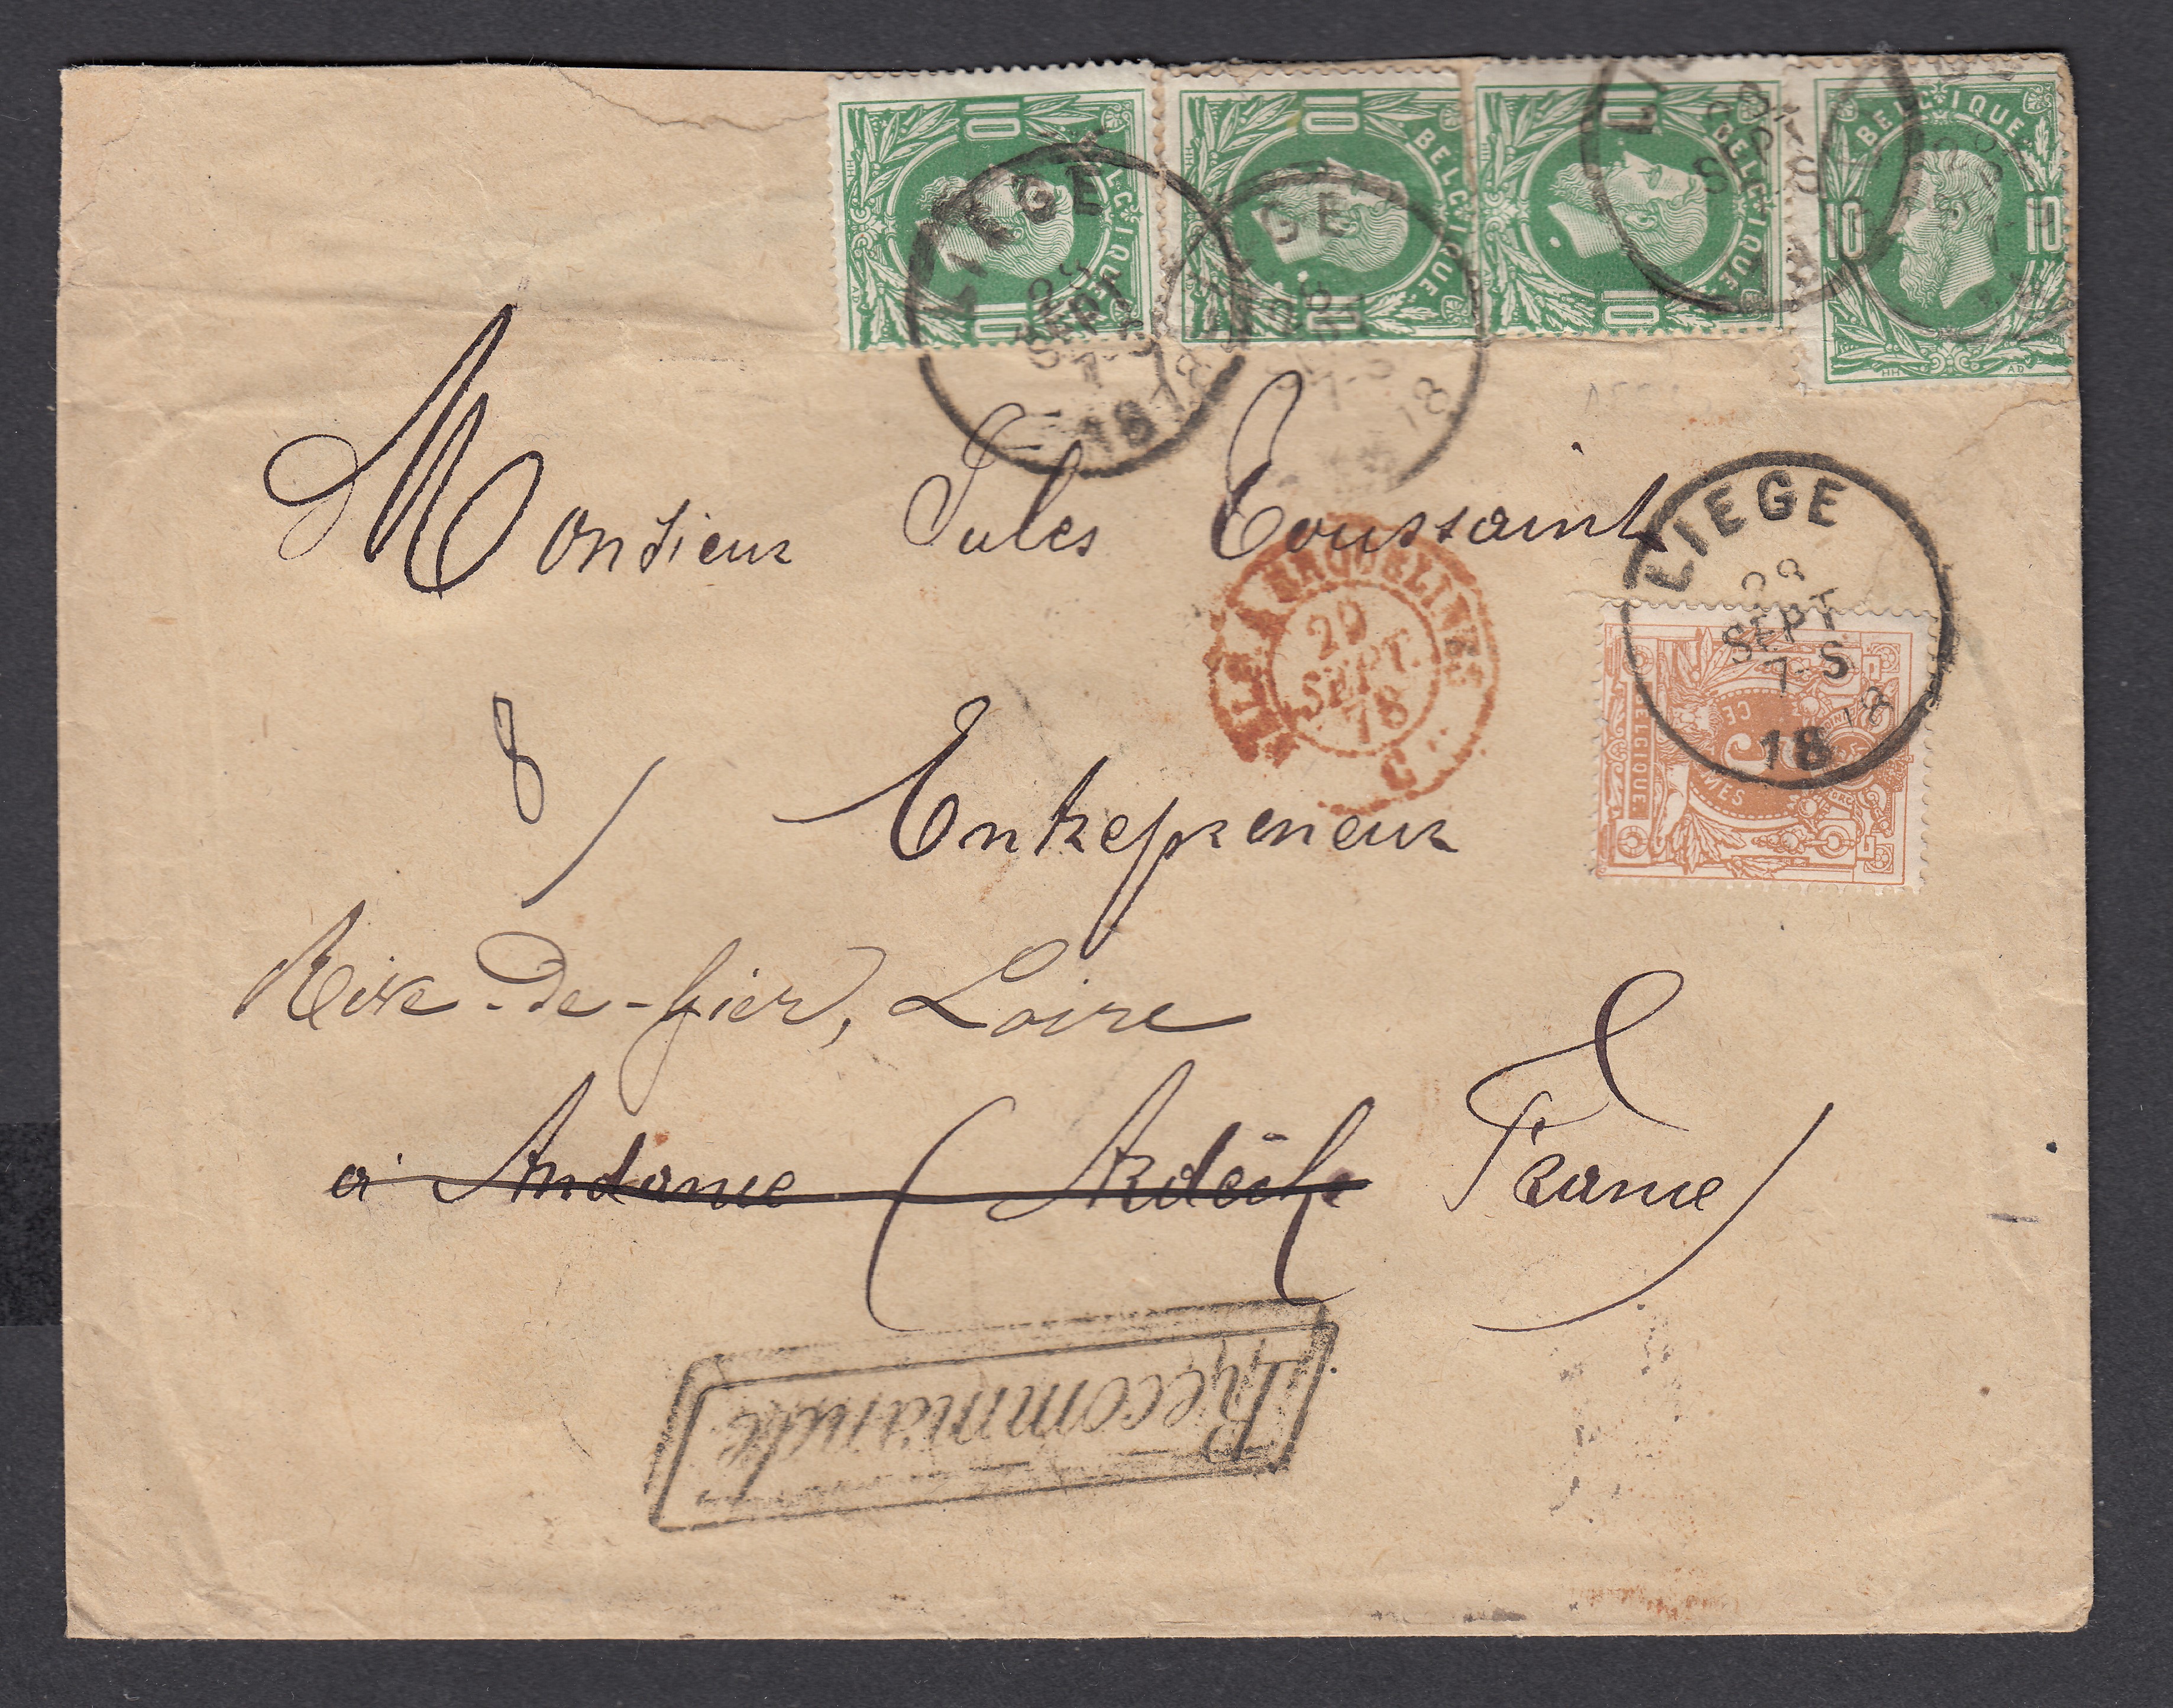 10 10
10 BELGIQUE
10 BELGIQUE 10
BELGIQUE 10 10
HH AD
LIEGE
SEPT
1878
LIEGE
SEPT
7-S
18 78
Monsieur Jules Toussaint
ERQUELINES
29
SEPT.
78
8/ Entrepreneur
BELGIQUE
5
Rive-de-Gier, Loire
à Andance (Ardèche France)
Recommandé